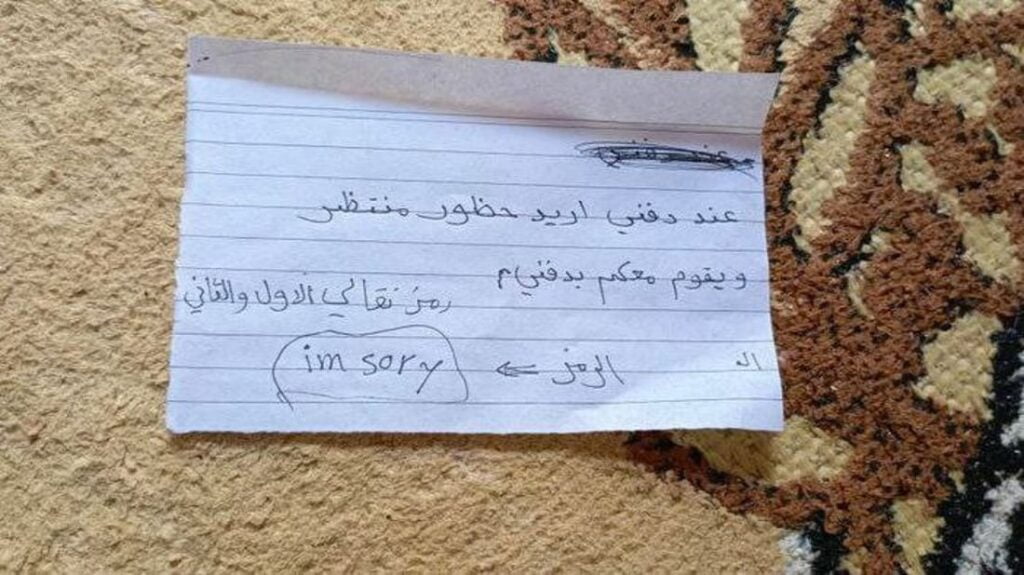 عند دفني اريد حظور منتظر
ويقوم معكم بدفني
رمز نقالي الاول والثاني
الرمز ← im sory
ال